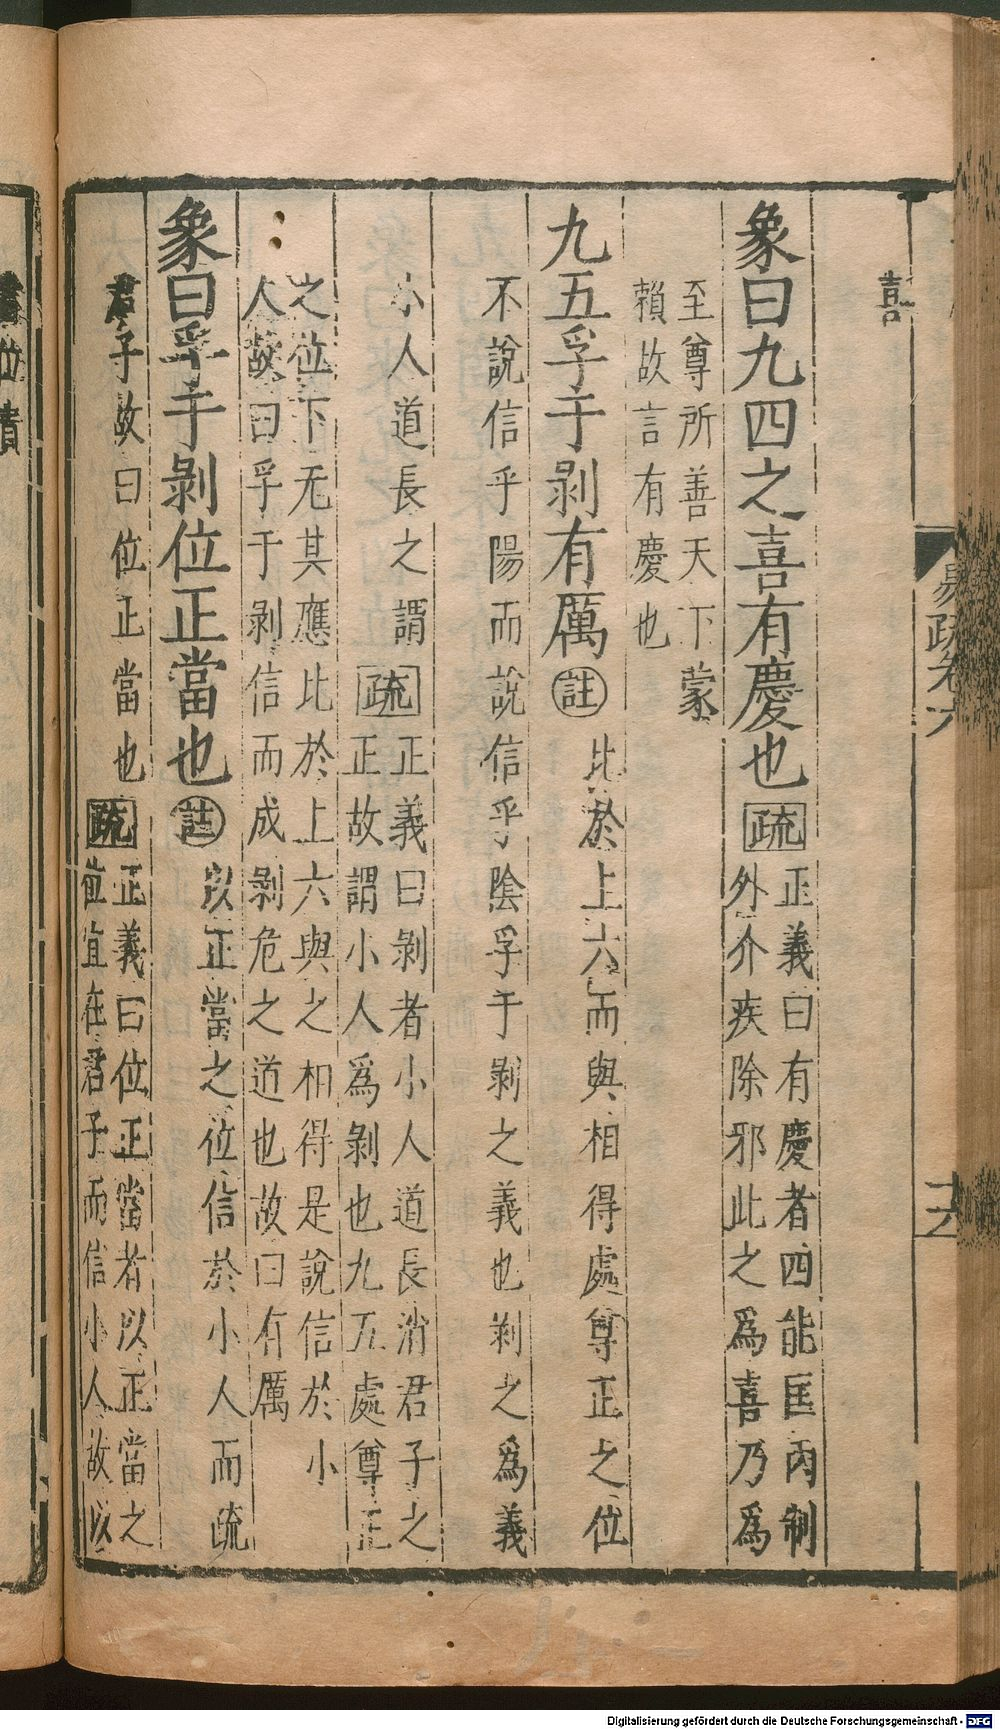 易疏卷六
喜
象曰九四之喜有慶也疏正義曰有慶者四能匡內制
外介疾除邪此之爲喜乃爲
至尊所善天下蒙
賴故言有慶也
九五孚于剥有厲註比於上六而與相得處尊正之位
不說信乎陽而說信乎陰孚于剥之義也剥之爲義
小人道長之謂疏正義曰剥者小人道長消君子之
正故謂小人爲剥也九五處尊正
之位下无其應比於上六與之相得是說信於小
人故曰孚于剥信而成剥危之道也故曰有厲
象曰孚于剥位正當也註以正當之位信於小人而疏
君子故曰位正當也疏正義曰位正當者以正當之
位宜在君子而信小人故以
Digitalisierung gefördert durch die Deutsche Forschungsgemeinschaft - DFG